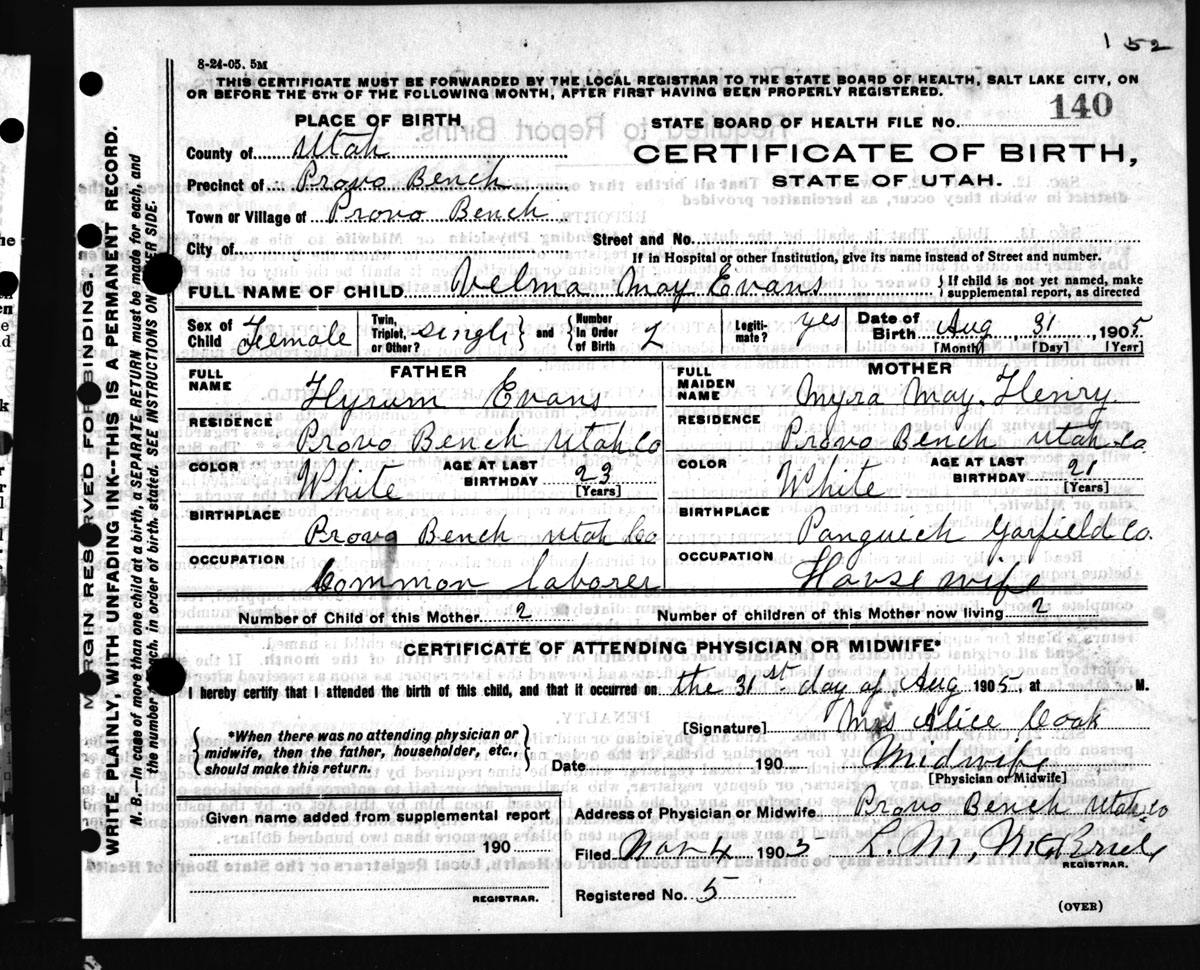 152
8-24-05. 5M
THIS CERTIFICATE MUST BE FORWARDED BY THE LOCAL REGISTRAR TO THE STATE BOARD OF HEALTH, SALT LAKE CITY, ON
OR BEFORE THE 5TH OF THE FOLLOWING MONTH, AFTER FIRST HAVING BEEN PROPERLY REGISTERED.
PLACE OF BIRTH.
STATE BOARD OF HEALTH FILE No. 140
County of Utah
CERTIFICATE OF BIRTH,
Precinct of Provo Bench
STATE OF UTAH.
Town or Village of Provo Bench
City of
Street and No.
If in Hospital or other Institution, give its name instead of Street and number.
FULL NAME OF CHILD Velma May Evans { If child is not yet named, make supplemental report, as directed
Sex of Child Female
Twin, Triplet, or Other? single } and { Number In Order of Birth 2
Legitimate? yes
Date of Birth Aug 31 1905
[Month] [Day] [Year]
FATHER
FULL NAME Hyrum Evans
RESIDENCE
Provo Bench Utah Co
COLOR White AGE AT LAST BIRTHDAY 23 [Years]
BIRTHPLACE
Provo Bench Utah Co
OCCUPATION
Common Laborer
MOTHER
FULL MAIDEN NAME Myra May Henry
RESIDENCE
Provo Bench Utah Co
COLOR White AGE AT LAST BIRTHDAY 21 [Years]
BIRTHPLACE
Panguich Garfield Co.
OCCUPATION
House wife
Number of Child of this Mother 2 Number of children of this Mother now living 2
CERTIFICATE OF ATTENDING PHYSICIAN OR MIDWIFE*
I hereby certify that I attended the birth of this child, and that it occurred on the 31st day of Aug 1905, at M.
{ *When there was no attending physician or
midwife, then the father, householder, etc.,
should make this return. }
[Signature] Mrs Alice Cook
Date 190 Midwife
[Physician or Midwife]
Given name added from supplemental report
190
REGISTRAR.
Address of Physician or Midwife Provo Bench Utah Co
Filed Nov 4 1905
L. M.
REGISTRAR.
Registered No. 5
(OVER)
MARGIN RESERVED FOR BINDING.
WRITE PLAINLY, WITH UNFADING INK--THIS IS A PERMANENT RECORD.
N. B.--In case of more than one child at a birth, a SEPARATE RETURN must be made for each, and
the number of each, in order of birth, stated. SEE INSTRUCTIONS ON OTHER SIDE.